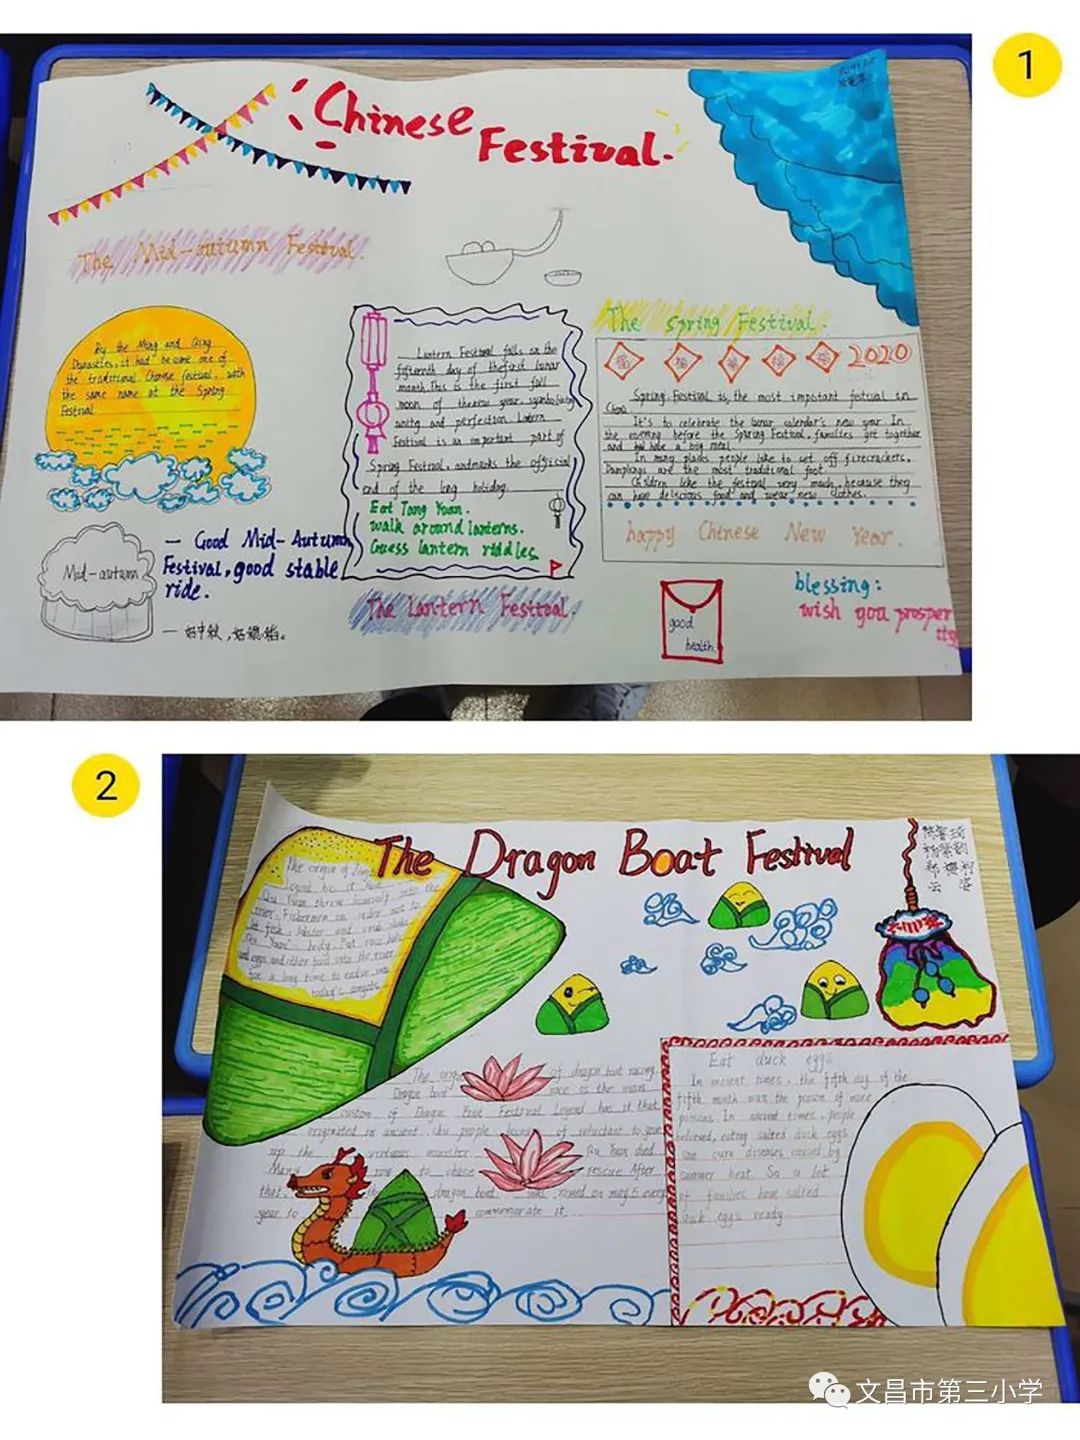 1
Chinese
Festival.
The Mid-autumn Festival.
By the Ming and Qing
Dynasties, it had become one of
the traditional Chinese festival, with
the same name at the Spring
Festival
Mid-autumn
— Good Mid-Autumn
Festival, good stable
ride.
Lantern Festival falls on the
fifteenth day of the first lunar
month. This is the first full
moon of the new year, symbolizing
unity and perfection. Lantern
Festival is an important part of
Spring Festival, and marks the official
end of the long holiday.
Eat Tang Yuan.
walk around lanterns.
Guess lantern riddles.
The Lantern Festival.
The Spring Festival.
福 福 福 福 福 2020
Spring Festival is the most important festival in
China.
It's to celebrate the lunar calendar's new year. In
the evening before the Spring Festival, families get together
and have a big meal.
In many places people like to set off firecrackers.
Dumplings are the most traditional foot.
Children like the festival very much, because they
can have delicious food and wear new clothes.
happy Chinese New Year.
good
health.
blessing:
wish you prosper
2
The Dragon Boat Festival
The origin of
Legend has it that
Qu Yuan threw himself into the
river. Fishermen in order not to
let fish, lobster and crab bite
Qu Yuan' body. Put rice balls
and eggs and other food into the river
for a long time to evolve into
today's
The of dragon boat racing
Dragon boat race is the main
custom of Dragon Boat Festival. Legend has it that
originated in ancient chu people because of reluctant to give
up the virtuous minister Qu Yuan died
Many to chase rescue. After
that, the dragon boat was rowed on may 5 every
year to commemorate it.
Eat duck eggs
In ancient times, the fifth day of the
fifth month was the poison of nine
poisons. In ancient times, people
believed, eating salted duck eggs
can cure diseases caused by
summer heat. So a lot
of families have salted
duck eggs ready
文昌市第三小学